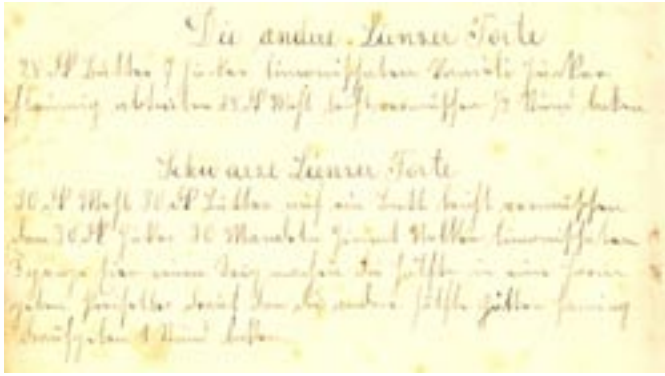 Die andere Linzer Torte
28 Butter 7 Zucker Limonischalen Vanili Zucker
abtreiben 28 Mehl leicht vermischen ½ Stund backen
Schwarze Linzer Torte
30 Mehl 30 Butter auf ein Brett leicht vermischen
dan 30 Zucker 30 Mandeln Zimmt Nelken Limonischalen
einen Teig machen die Hälfte in eine Form
geben darauf dan die andere Hälfte
daraufgeben 1 Stund backen